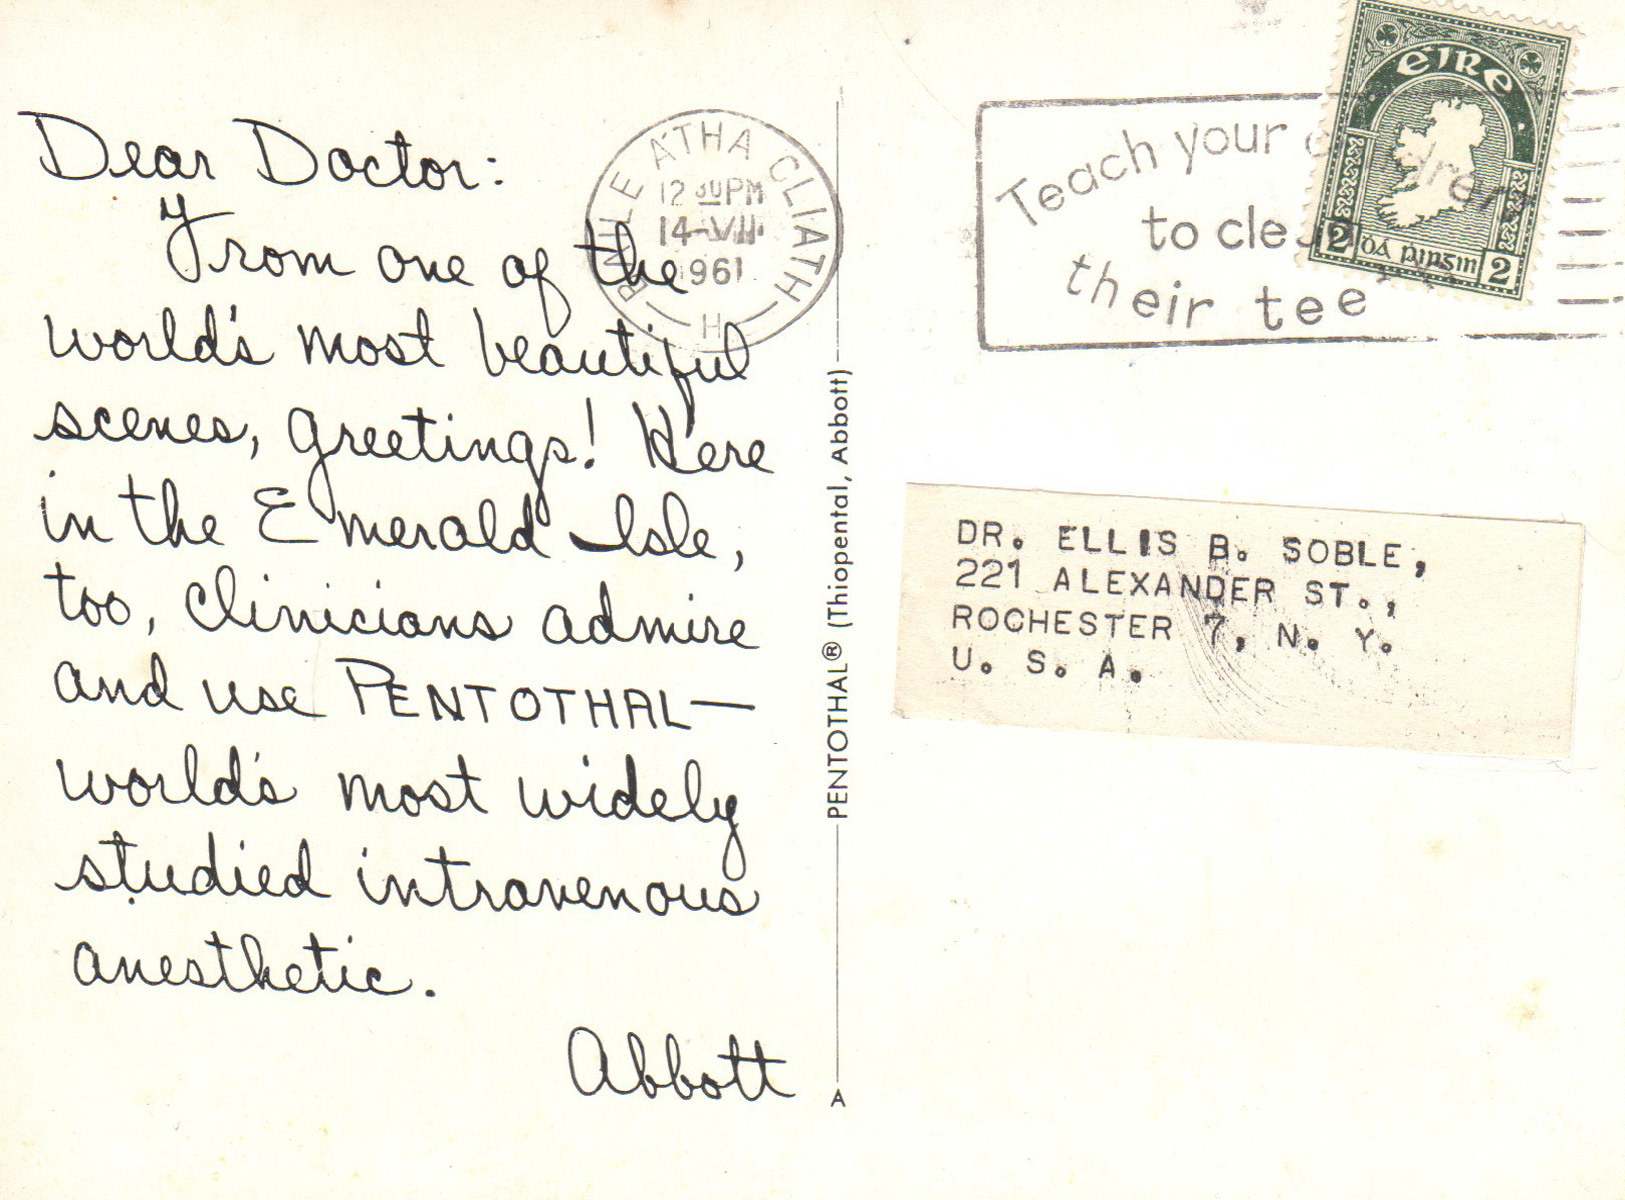 Dear Doctor:
From one of the
world's most beautiful
scenes, greetings! Here
in the Emerald Isle,
too, clinicians admire
and use PENTOTHAL—
world's most widely
studied intravenous
anesthetic.
Abbott
BAILE ATHA CLIATH
12 30PM
14-VII
1961
H
PENTOTHAL® (Thiopental, Abbott)
A
Teach your children
to clean
their tee
EIRE
2 DÁ PINGIN 2
DR. ELLIS B. SOBLE,
221 ALEXANDER ST.,
ROCHESTER 7, N. Y.
U. S. A.